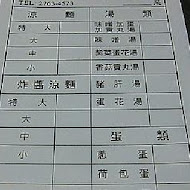 TEL 2703-4573
涼麵 湯類
特大 味噌加蛋
加貢丸湯
大 味噌湯
中 餛飩蛋花湯
小 香菇貢丸湯
炸醬涼麵 豬肝湯
特大 蛋花湯
大
中 蛋類
小 滷蛋
荷包蛋